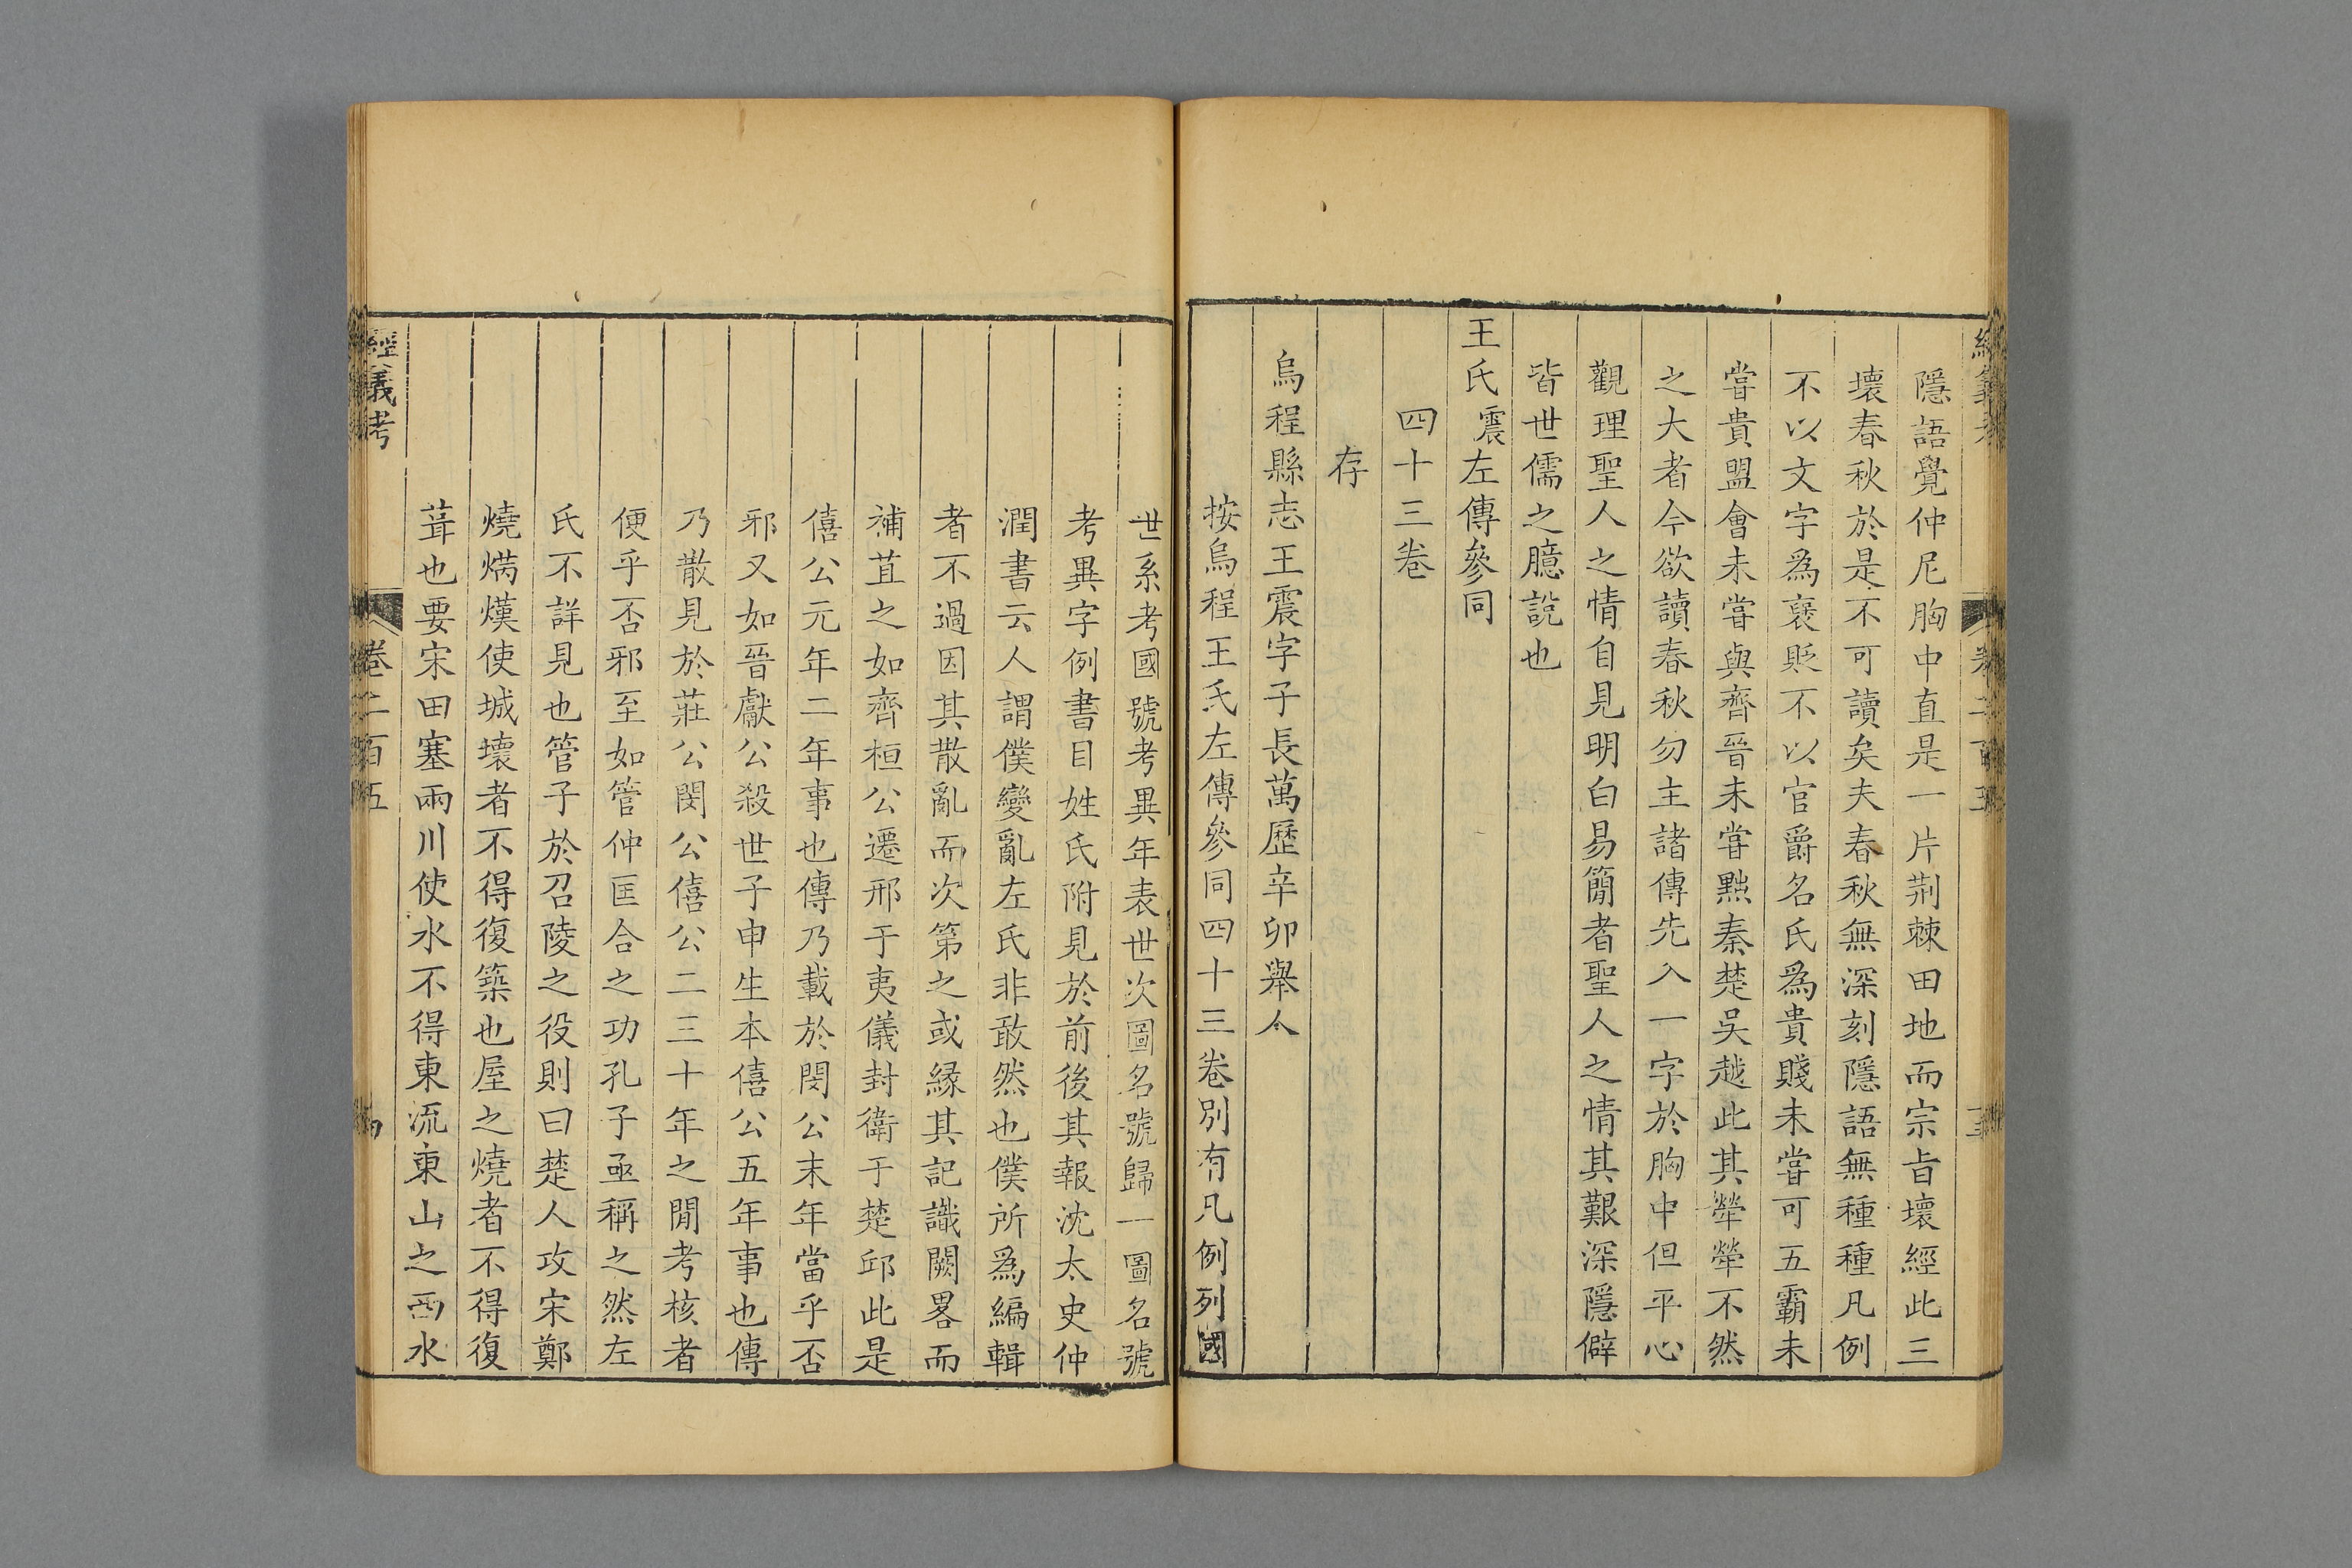 隱語覺仲尼胸中直是一片荆棘田地而宗旨壞經此三
壞春秋於是不可讀矣夫春秋無深刻隱語無種種凡例
不以文字為襃貶不以官爵名氏為貴賤未嘗可五霸未
嘗貴盟會未嘗與齊晉未嘗黜秦楚吳越此其犖犖不然
之大者今欲讀春秋勿主諸傳先入一字於胸中但平心
觀理聖人之情自見明白易簡者聖人之情其艱深隱僻
皆世儒之臆說也
王氏震左傳參同
四十三卷
存
烏程縣志王震字子長萬歷辛卯舉人
按烏程王氏左傳參同四十三卷別有凡例列國
世系考國號考異年表世次圖名號歸一圖名號
考異字例書目姓氏附見於前後其報沈太史仲
潤書云人謂僕變亂左氏非敢然也僕所為編輯
者不過因其散亂而次第之或緣其記識闕畧而
補苴之如齊桓公遷邢于夷儀封衛于楚邱此是
僖公元年二年事也傳乃載於閔公末年當乎否
邪又如晉獻公殺世子申生本僖公五年事也傳
乃散見於莊公閔公僖公二三十年之閒考核者
便乎否邪至如管仲匡合之功孔子亟稱之然左
氏不詳見也管子於召陵之役則曰楚人攻宋鄭
燒焫熯使城壞者不得復築也屋之燒者不得復
葺也要宋田塞兩川使水不得東流東山之西水
經義考
卷二百五